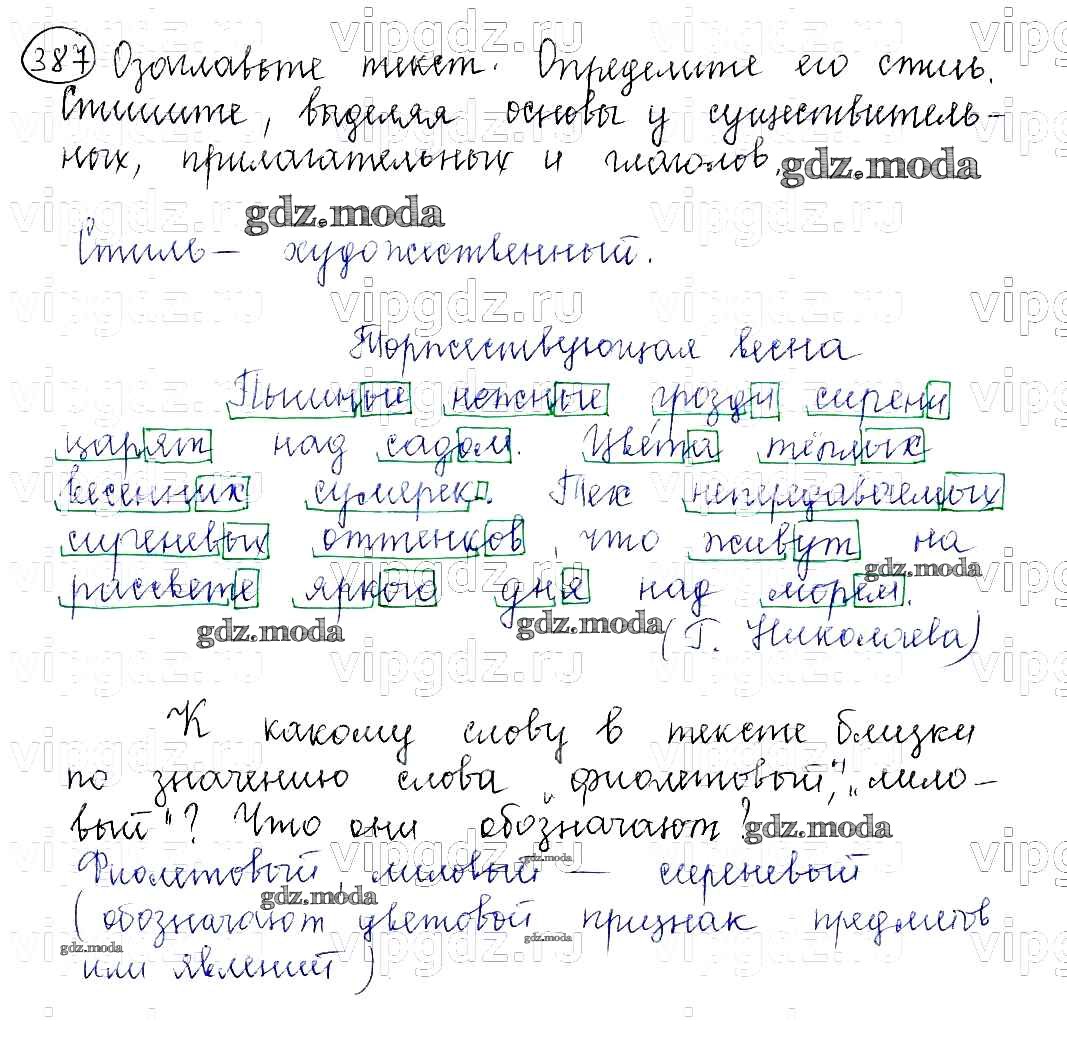 387 Озаглавьте текст. Определите его стиль.
Спишите, выделяя основы у существитель-
ных, прилагательных и глаголов.
gdz.moda
gdz.moda
Стиль - художественный.
Торжествующая весна
Пышные нежные грозди сирени
царят над садом. Цвета тёплых
весенних сумерек. Тех непередаваемых
сиреневых оттенков, что живут на
рассвете яркого дня над морем.
gdz.moda
gdz.moda
gdz.moda
(Г. Николаева)
К какому слову в тексте близки
по значению слова „фиолетовый", „лило-
вый"? Что они обозначают?
gdz.moda
Фиолетовый, лиловый - сиреневый
gdz.moda
gdz.moda
(обозначают цветовой признак предметов
gdz.moda
gdz.moda
или явлений)
vipgdz.ru